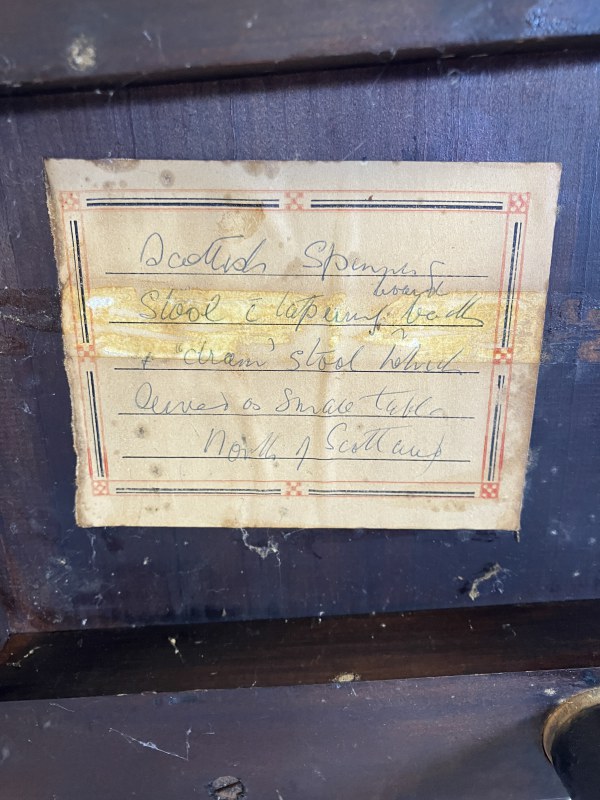 Scottish Spinning
Stool c̄ tapering board back
& 'dram' stool which
served as small table
North of Scotland